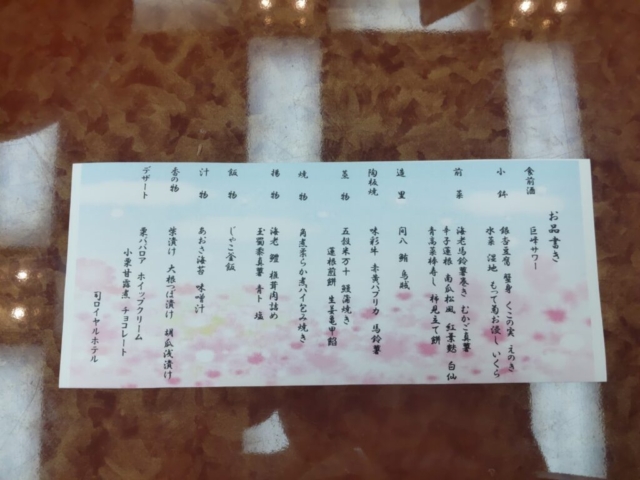 お品書き
食前酒 巨峰サワー
小鉢 銀杏豆腐 蟹身 くこの実 えのき
水菜 湿地 もって菊お浸し いくら
前菜 海老馬鈴薯巻き むかご真薯
辛子蓮根 南瓜松風 紅葉麩 白仙
青高菜棒寿し 柿見立て餅
造里 間八 鮪 烏賊
陶板焼 味彩牛 赤黄パプリカ 馬鈴薯
蒸物 五穀米万十 鰻蒲焼き
蓮根煎餅 生姜亀甲餡
焼物 角煮柔らか煮パイ包み焼き
揚物 海老 鱧 椎茸肉詰め
玉蜀黍真薯 青ト 塩
飯物 じゃこ釜飯
汁物 あおさ海苔 味噌汁
香の物 柴漬け 大根つぼ漬け 胡瓜浅漬け
デザート 栗ババロア ホイップクリーム
小栗甘露煮 チョコレート
司ロイヤルホテル